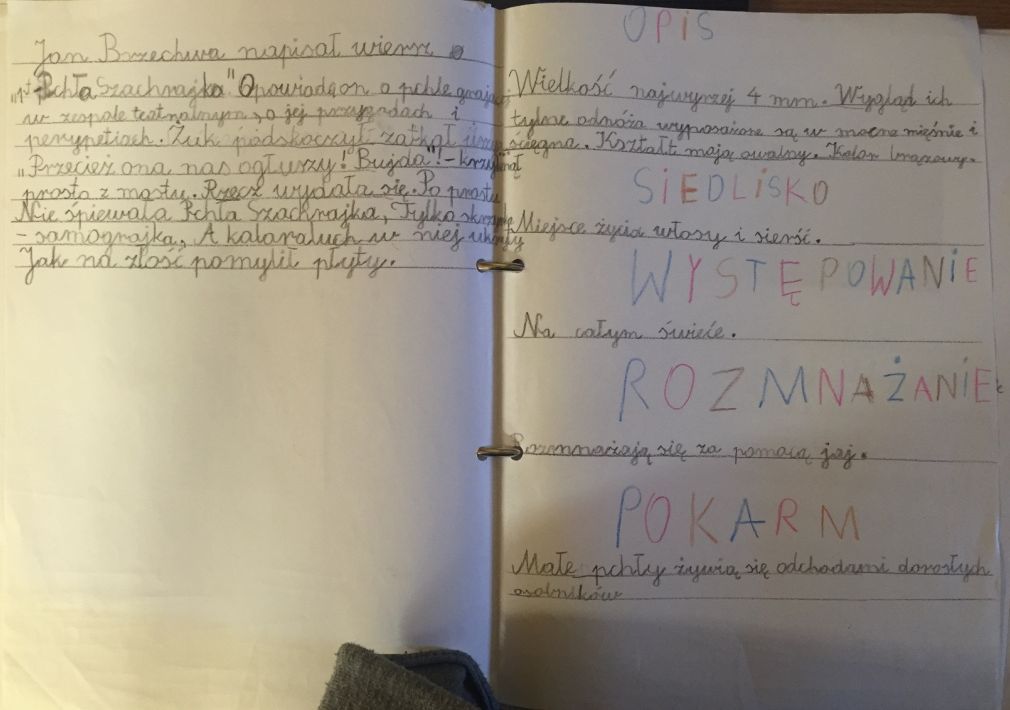 Jan Brzechwa napisał wiersz o
"pt. Pchła Szachrajka". Opowiada on o pchle grającej
w zespole teatralnym, o jej przygodach i
perypetiach. Żuk podskoczył: zatkał uszy
"Przecież ona nas ogłuszy!" Bujda"! - krzyknął
prosto z mostu. Rzecz wydała się. Po prostu
Nie śpiewała Pchła Szachrajka, Tylko skrzynka
- samograjka, A kalaraluch w niej ukryty
Jak na złość pomylił płyty.
OPIS
Wielkość najwyrzej 4 mm. Wygląd ich
tylne odnóża wyposażone są w mocne mięśnie i
ścięgna. Kształt mają owalny. Kolor brązowy.
SIEDLISKO
Miejsce życia włosy i sierść.
WYSTĘPOWANIE
Na całym świecie.
ROZMNAŻANIE
Rozmnażają się za pomocą jaj.
POKARM
Małe pchły żywią się odchodami dorosłych
osobników